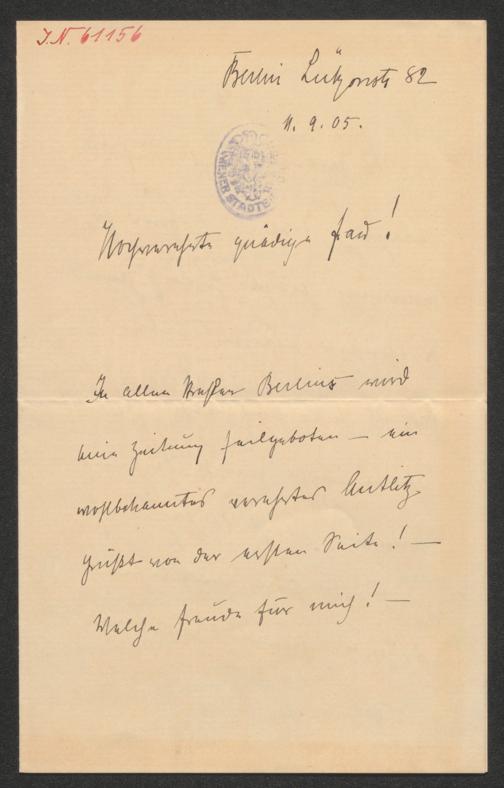 J.N. 61156
Berlin Lützowstr 82
11. 9. 05.
WIENER STADTB
Hochverehrte gnädige Frau!
In allen Straßen Berlins wird
eine Zeitung feilgeboten — ein
wohlbekanntes verehrtes Antlitz
grüßt von der ersten Seite! —
Welche Freude für mich! —